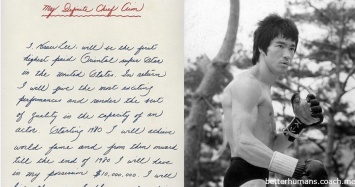 My Definite Chief Aim
I, Bruce Lee, will be the first
highest paid Oriental super star
in the United States. In return
I will give the most exciting
performances and render the best
of quality in the capacity of an
actor. Starting 1970 I will achieve
world fame and from then onward
till the end of 1980 I will have
in my possession $10,000,000. I will
betterhumans.coach.me